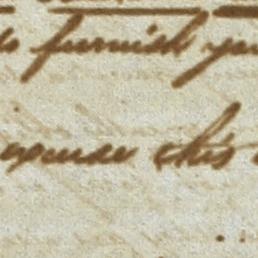 to furnish you
expense this